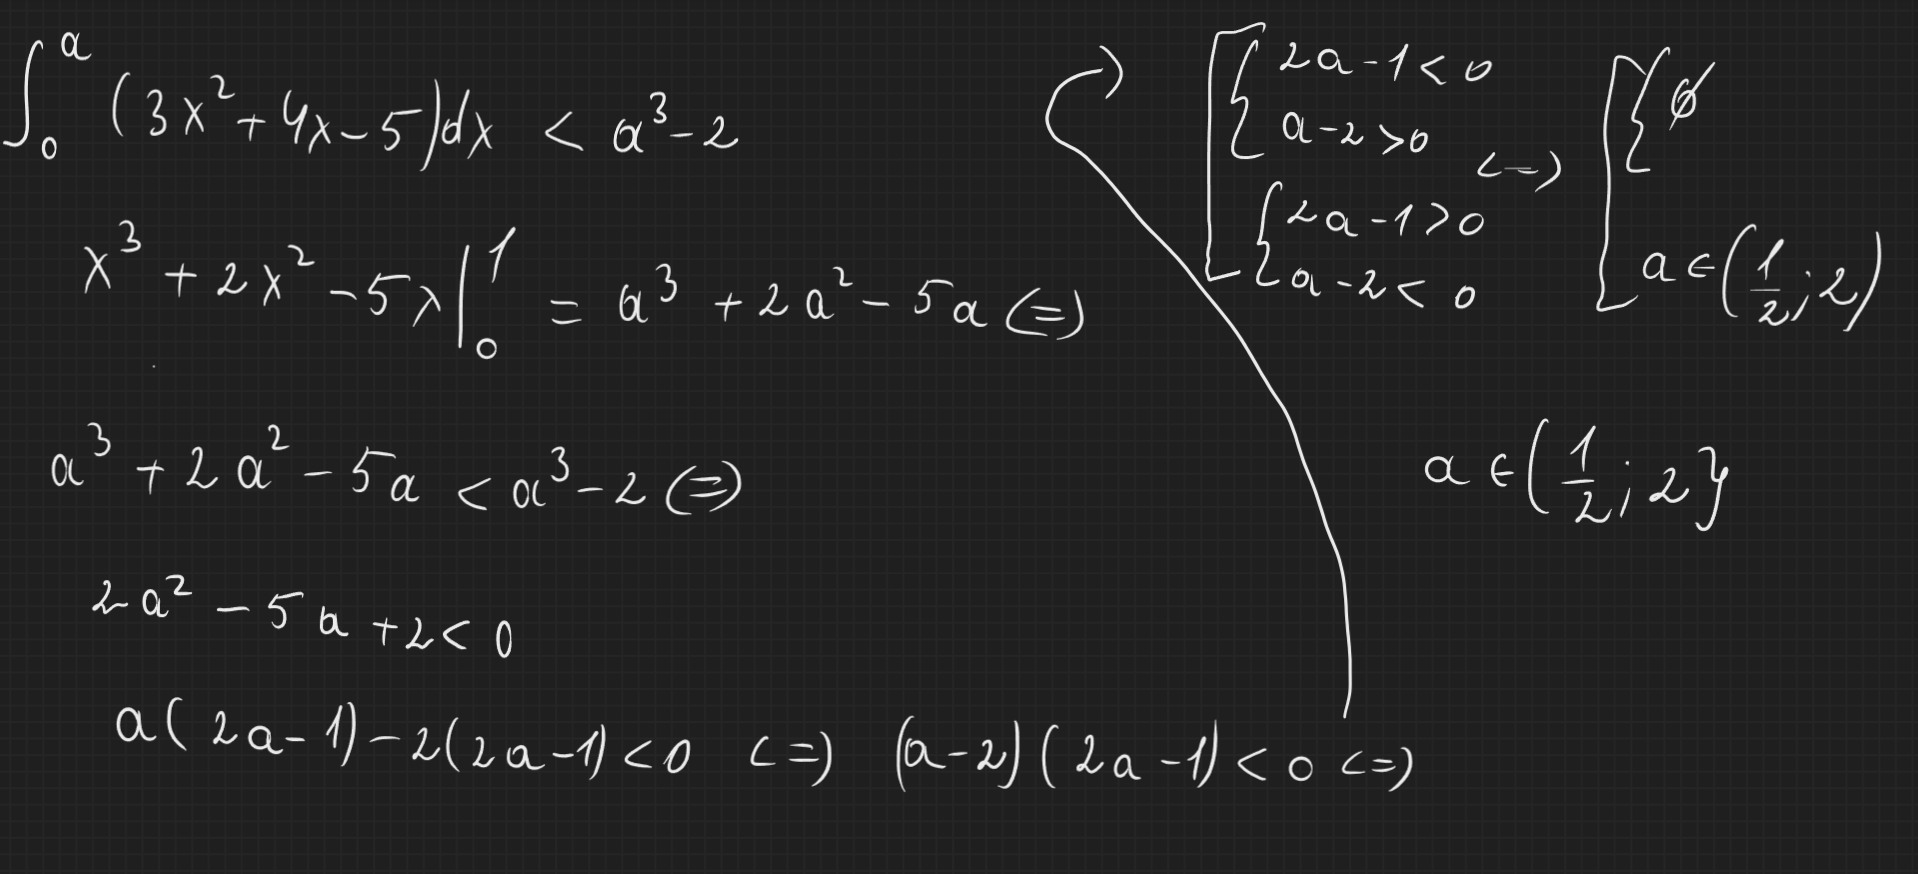 ∫₀ᵃ (3x² + 4x - 5)dx < a³ - 2
x³ + 2x² - 5x |₀¹ = a³ + 2a² - 5a (=)
a³ + 2a² - 5a < a³ - 2 (=)
2a² - 5a + 2 < 0
a(2a - 1) - 2(2a - 1) < 0 <=) (a - 2)(2a - 1) < 0 <=)
[ { 2a - 1 < 0
a - 2 > 0
{ 2a - 1 > 0
a - 2 < 0
<=) [ { ∅
a ∈ (1/2; 2)
a ∈ (1/2; 2}